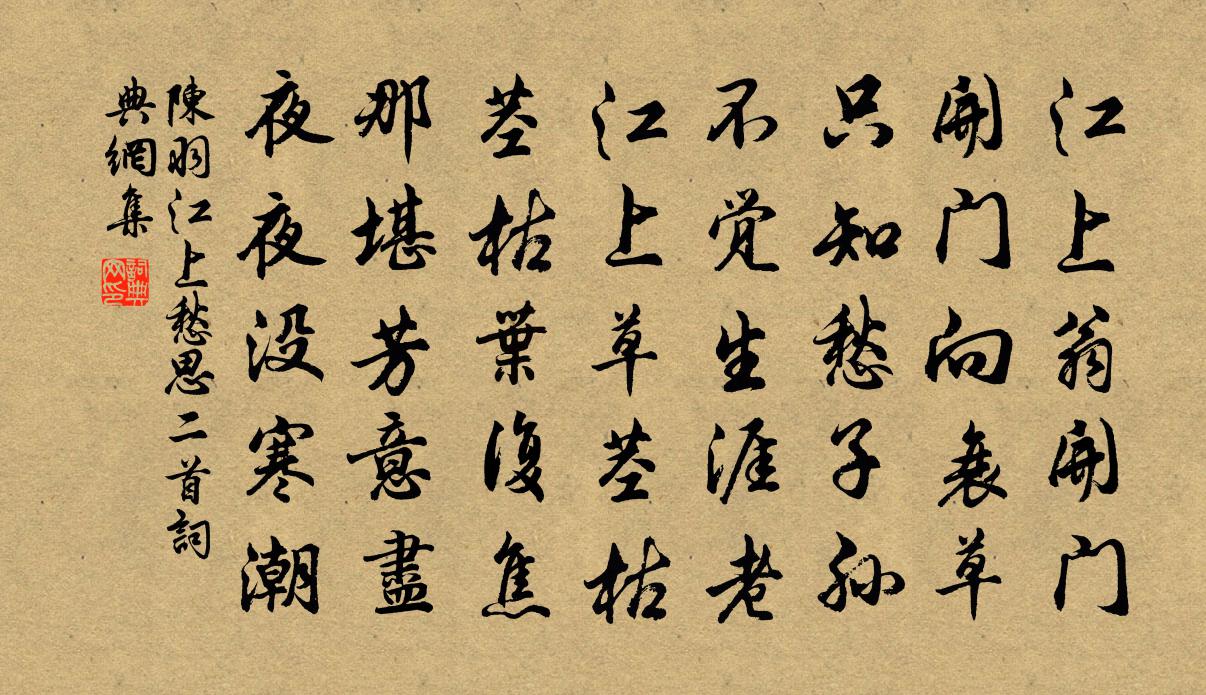 江上翁開門
開門向衰草
只知愁子孙
不覚生涯老
江上草莖枯
莖枯葉復焦
那堪芳意盡
夜夜没寒潮
陳羽江上愁思二首詞
典網集
詞典
网印